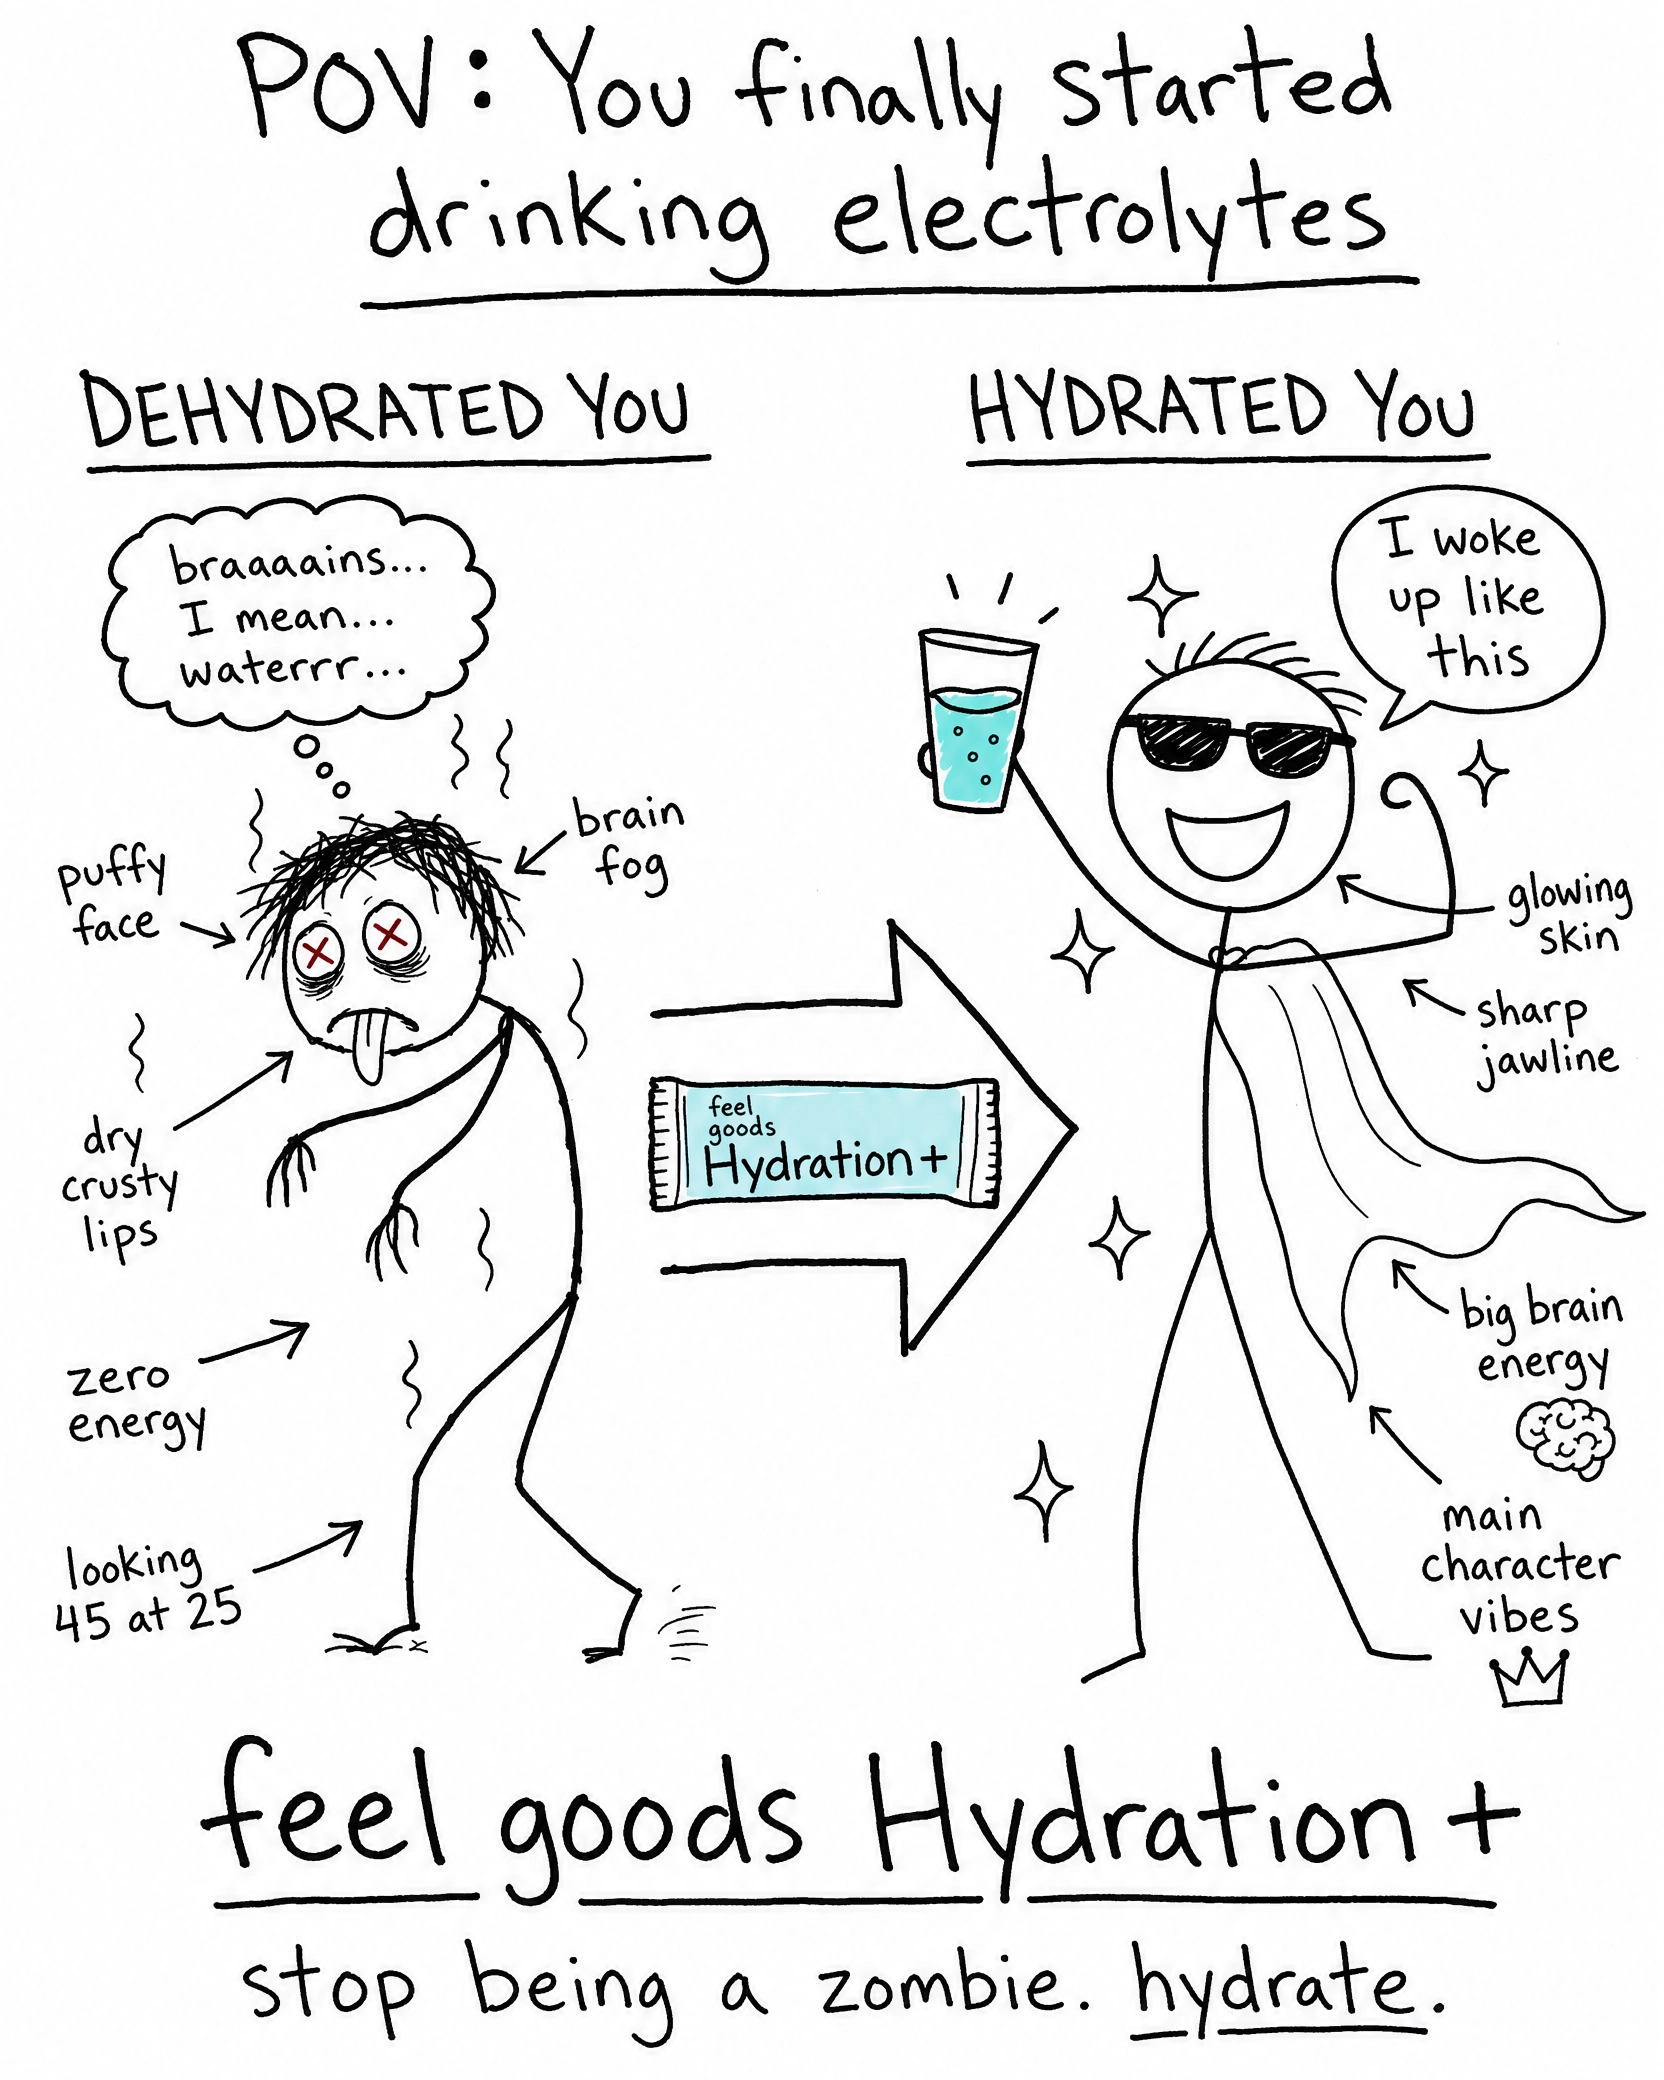 POV: You finally started
drinking electrolytes
DEHYDRATED YOU
braaaains...
I mean...
waterrr...
brain
fog
puffy
face
dry
crusty
lips
zero
energy
looking
45 at 25
feel
goods
Hydration+
HYDRATED YOU
I woke
up like
this
glowing
skin
sharp
jawline
big brain
energy
main
character
vibes
feel goods Hydration+
stop being a zombie. hydrate.